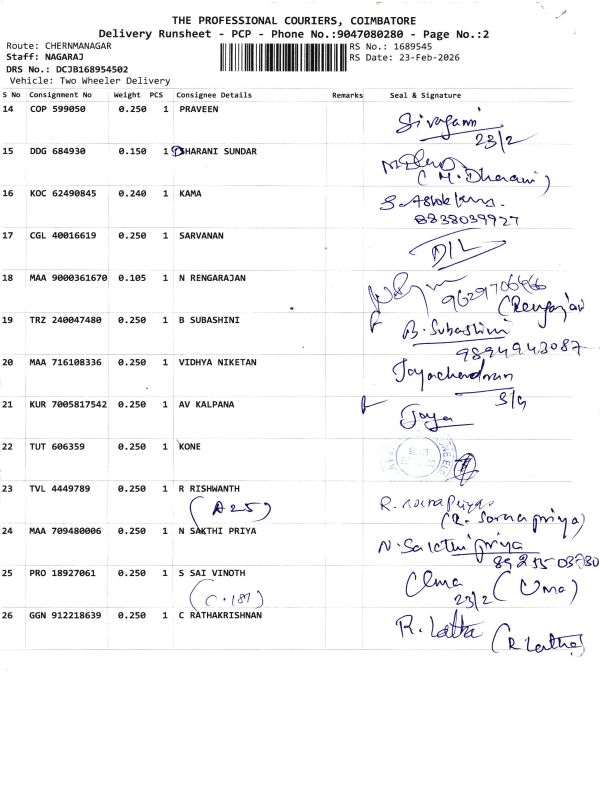 THE PROFESSIONAL COURIERS, COIMBATORE
Delivery Runsheet - PCP - Phone No.:9047080280 - Page No.:2
Route: CHERNMANAGAR RS No.: 1689545
Staff: NAGARAJ RS Date: 23-Feb-2026
DRS No.: DCJB168954502
Vehicle: Two Wheeler Delivery
S No Consignment No Weight PCS Consignee Details Remarks Seal & Signature
14 COP 599050 0.250 1 PRAVEEN Sivagami
23/2
15 DDG 684930 0.150 1 DHARANI SUNDAR
(M. Dharani)
16 KOC 62490845 0.240 1 KAMA
8838039927
17 CGL 40016619 0.250 1 SARVANAN D/L
18 MAA 9000361670 0.105 1 N RENGARAJAN
19 TRZ 240047480 0.250 1 B SUBASHINI B. Subashini
9894943087
20 MAA 716108336 0.250 1 VIDHYA NIKETAN Jayachandran
S/g
21 KUR 7005817542 0.250 1 AV KALPANA Jaya
22 TUT 606359 0.250 1 KONE
23 TVL 4449789 0.250 1 R RISHWANTH
(A25) (R. Sornapriya)
24 MAA 709480006 0.250 1 N SAKTHI PRIYA N. Sakthipriya
25 PRO 18927061 0.250 1 S SAI VINOTH Uma (Uma)
(C.187) 23/2
26 GGN 912218639 0.250 1 C RATHAKRISHNAN R. Latha
(R Latha)